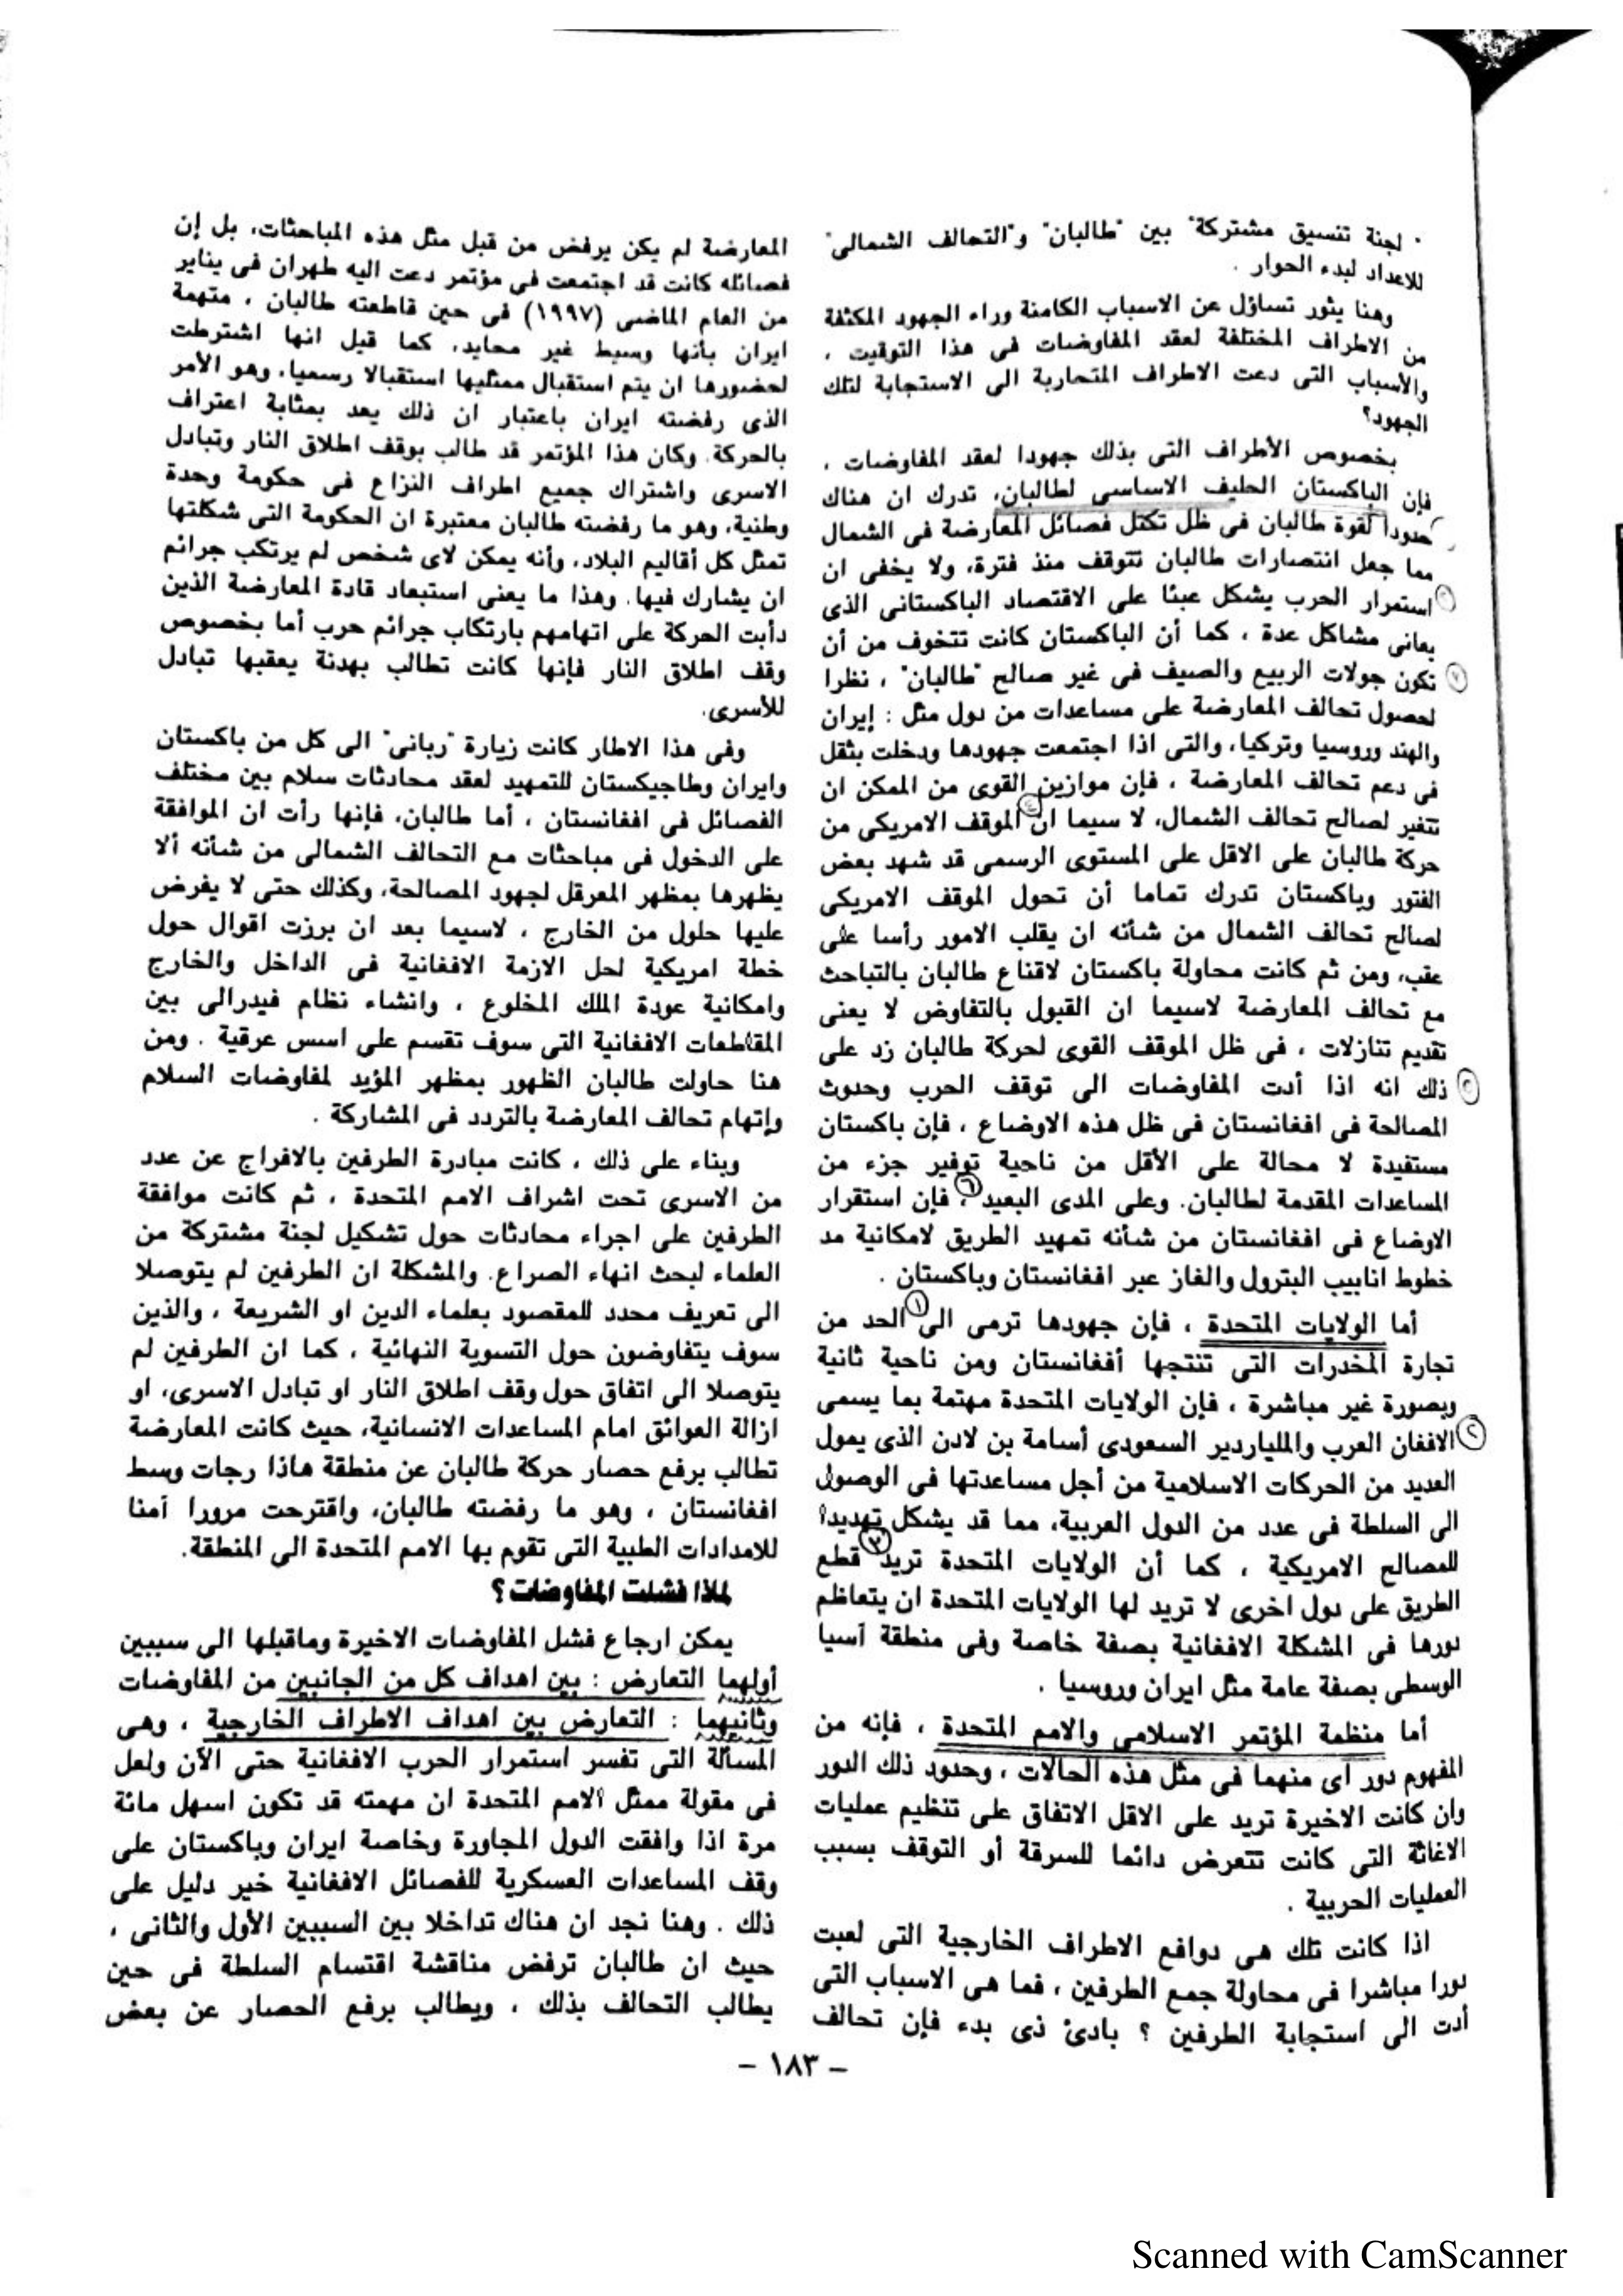 " لجنة تنسيق مشتركة" بين "طالبان" و"التحالف الشمالى"
للاعداد لبدء الحوار .
وهنا يثور تساؤل عن الاسباب الكامنة وراء الجهود المكثفة
من الاطراف المختلفة لعقد المفاوضات فى هذا التوقيت ،
والأسباب التى دعت الاطراف المتحاربة الى الاستجابة لتلك
الجهود؟
بخصوص الأطراف التى بذلك جهودا لعقد المفاوضات ،
فإن الباكستان الحليف الاساسى لطالبان، تدرك ان هناك
حدوداً لقوة طالبان فى ظل تكتل فصائل المعارضة فى الشمال
مما جعل انتصارات طالبان تتوقف منذ فترة، ولا يخفى ان
استمرار الحرب يشكل عبئا على الاقتصاد الباكستانى الذى
يعانى مشاكل عدة ، كما أن الباكستان كانت تتخوف من أن
تكون جولات الربيع والصيف فى غير صالح "طالبان" ، نظرا
لحصول تحالف المعارضة على مساعدات من دول مثل : إيران
والهند وروسيا وتركيا، والتى اذا اجتمعت جهودها ودخلت بثقل
فى دعم تحالف المعارضة ، فإن موازين القوى من الممكن ان
تتغير لصالح تحالف الشمال، لا سيما ان الموقف الامريكى من
حركة طالبان على الاقل على المستوى الرسمى قد شهد بعض
الفتور وباكستان تدرك تماما أن تحول الموقف الامريكى
لصالح تحالف الشمال من شأنه ان يقلب الامور رأسا على
عقب، ومن ثم كانت محاولة باكستان لاقناع طالبان بالتباحث
مع تحالف المعارضة لاسيما ان القبول بالتفاوض لا يعنى
تقديم تنازلات ، فى ظل الموقف القوى لحركة طالبان زد على
ذلك انه اذا أدت المفاوضات الى توقف الحرب وحدوث
المصالحة فى افغانستان فى ظل هذه الاوضاع ، فإن باكستان
مستفيدة لا محالة على الأقل من ناحية توفير جزء من
المساعدات المقدمة لطالبان. وعلى المدى البعيد ٦ ، فإن استقرار
الاوضاع فى افغانستان من شأنه تمهيد الطريق لامكانية مد
خطوط انابيب البترول والغاز عبر افغانستان وباكستان .
أما الولايات المتحدة ، فإن جهودها ترمى الى ١ الحد من
تجارة المخدرات التى تنتجها أفغانستان ومن ناحية ثانية
وبصورة غير مباشرة ، فإن الولايات المتحدة مهتمة بما يسمى
٢ الافغان العرب والملياردير السعودى أسامة بن لادن الذى يمول
العديد من الحركات الاسلامية من أجل مساعدتها فى الوصول
الى السلطة فى عدد من الدول العربية، مما قد يشكل تهديدا
للمصالح الامريكية ، كما أن الولايات المتحدة تريد قطع
الطريق على دول اخرى لا تريد لها الولايات المتحدة ان يتعاظم
دورها فى المشكلة الافغانية بصفة خاصة وفى منطقة آسيا
الوسطى بصفة عامة مثل ايران وروسيا .
أما منظمة المؤتمر الاسلامى والامم المتحدة ، فإنه من
المفهوم دور اى منهما فى مثل هذه الحالات ، وحدود ذلك الدور
وان كانت الاخيرة تريد على الاقل الاتفاق على تنظيم عمليات
الاغاثة التى كانت تتعرض دائما للسرقة أو التوقف بسبب
العمليات الحربية .
اذا كانت تلك هى دوافع الاطراف الخارجية التى لعبت
دورا مباشرا فى محاولة جمع الطرفين ، فما هى الاسباب التى
أدت الى استجابة الطرفين ؟ بادئ ذى بدء فإن تحالف
المعارضة لم يكن يرفض من قبل مثل هذه المباحثات، بل إن
فصائله كانت قد اجتمعت فى مؤتمر دعت اليه طهران فى يناير
من العام الماضى (١٩٩٧) فى حين قاطعته طالبان ، متهمة
ايران بأنها وسيط غير محايد، كما قيل انها اشترطت
لحضورها ان يتم استقبال ممثليها استقبالا رسميا، وهو الأمر
الذى رفضته ايران باعتبار ان ذلك يعد بمثابة اعتراف
بالحركة. وكان هذا المؤتمر قد طالب بوقف اطلاق النار وتبادل
الاسرى واشتراك جميع اطراف النزاع فى حكومة وحدة
وطنية، وهو ما رفضته طالبان معتبرة ان الحكومة التى شكلتها
تمثل كل أقاليم البلاد، وأنه يمكن لاى شخص لم يرتكب جرائم
ان يشارك فيها. وهذا ما يعنى استبعاد قادة المعارضة الذين
دأبت الحركة على اتهامهم بارتكاب جرائم حرب أما بخصوص
وقف اطلاق النار فإنها كانت تطالب بهدنة يعقبها تبادل
للأسرى.
وفى هذا الاطار كانت زيارة "ربانى" الى كل من باكستان
وايران وطاجيكستان للتمهيد لعقد محادثات سلام بين مختلف
الفصائل فى افغانستان ، أما طالبان، فإنها رأت ان الموافقة
على الدخول فى مباحثات مع التحالف الشمالى من شأنه ألا
يظهرها بمظهر المعرقل لجهود المصالحة، وكذلك حتى لا يفرض
عليها حلول من الخارج ، لاسيما بعد ان برزت اقوال حول
خطة امريكية لحل الازمة الافغانية فى الداخل والخارج
وامكانية عودة الملك المخلوع ، وانشاء نظام فيدرالى بين
المقاطعات الافغانية التى سوف تقسم على اسس عرقية . ومن
هنا حاولت طالبان الظهور بمظهر المؤيد لمفاوضات السلام
وإتهام تحالف المعارضة بالتردد فى المشاركة .
وبناء على ذلك ، كانت مبادرة الطرفين بالافراج عن عدد
من الاسرى تحت اشراف الامم المتحدة ، ثم كانت موافقة
الطرفين على اجراء محادثات حول تشكيل لجنة مشتركة من
العلماء لبحث انهاء الصراع. والمشكلة ان الطرفين لم يتوصلا
الى تعريف محدد للمقصود بعلماء الدين او الشريعة ، والذين
سوف يتفاوضون حول التسوية النهائية ، كما ان الطرفين لم
يتوصلا الى اتفاق حول وقف اطلاق النار او تبادل الاسرى، او
ازالة العوائق امام المساعدات الانسانية، حيث كانت المعارضة
تطالب برفع حصار حركة طالبان عن منطقة هاذا رجات وسط
افغانستان ، وهو ما رفضته طالبان، واقترحت مرورا آمنا
للامدادات الطبية التى تقوم بها الامم المتحدة الى المنطقة.
لماذا فشلت المفاوضات ؟
يمكن ارجاع فشل المفاوضات الاخيرة وماقبلها الى سببين
أولهما التعارض : بين اهداف كل من الجانبين من المفاوضات
وثانيهما : التعارض بين اهداف الاطراف الخارجية ، وهى
المسألة التى تفسر استمرار الحرب الافغانية حتى الآن ولعل
فى مقولة ممثل الامم المتحدة ان مهمته قد تكون اسهل مائة
مرة اذا وافقت الدول المجاورة وخاصة ايران وباكستان على
وقف المساعدات العسكرية للفصائل الافغانية خير دليل على
ذلك . وهنا نجد ان هناك تداخلا بين السببين الأول والثانى ،
حيث ان طالبان ترفض مناقشة اقتسام السلطة فى حين
يطالب التحالف بذلك ، ويطالب برفع الحصار عن بعض
– ١٨٣ –
Scanned with CamScanner